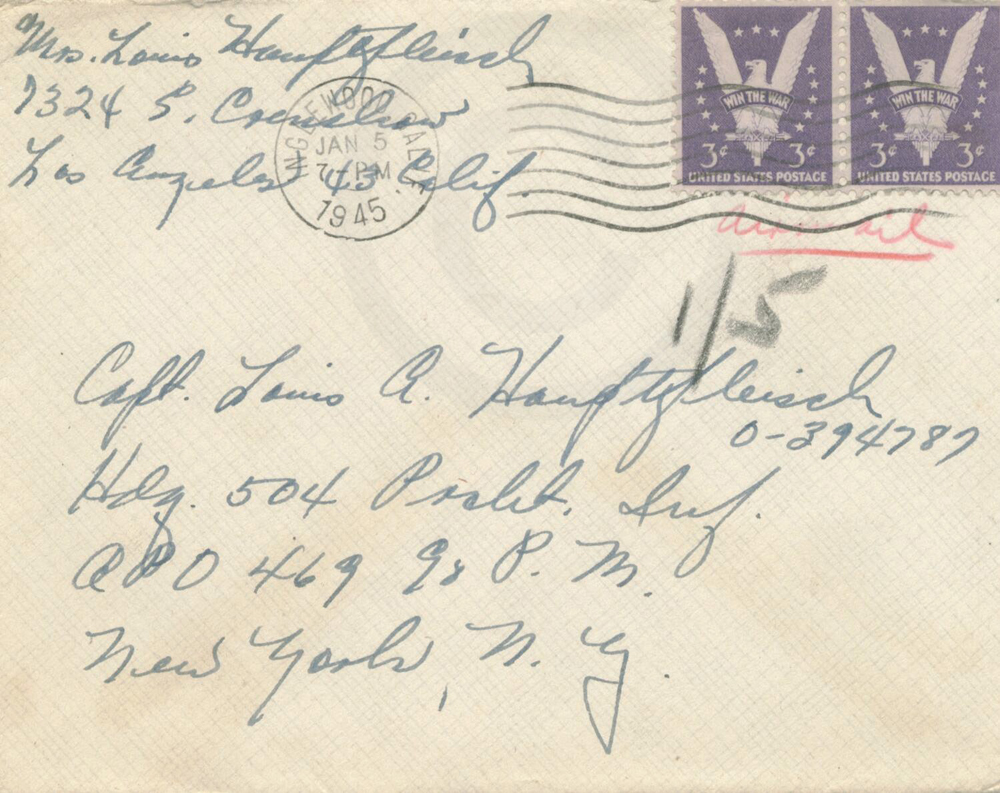 Mrs. Louis Hauptfleisch
7324 S. Crenshaw
Los Angeles 43 Calif.
INGLEWOOD, CALIF.
JAN 5
7 - PM
1945
WIN THE WAR
3¢ 3¢
UNITED STATES POSTAGE
WIN THE WAR
3¢ 3¢
UNITED STATES POSTAGE
airmail
1/5
Capt. Louis A. Hauptfleisch
0-394787
Hdq. 504 Prcht. Inf.
APO 469 % P. M.
New York, N. Y.